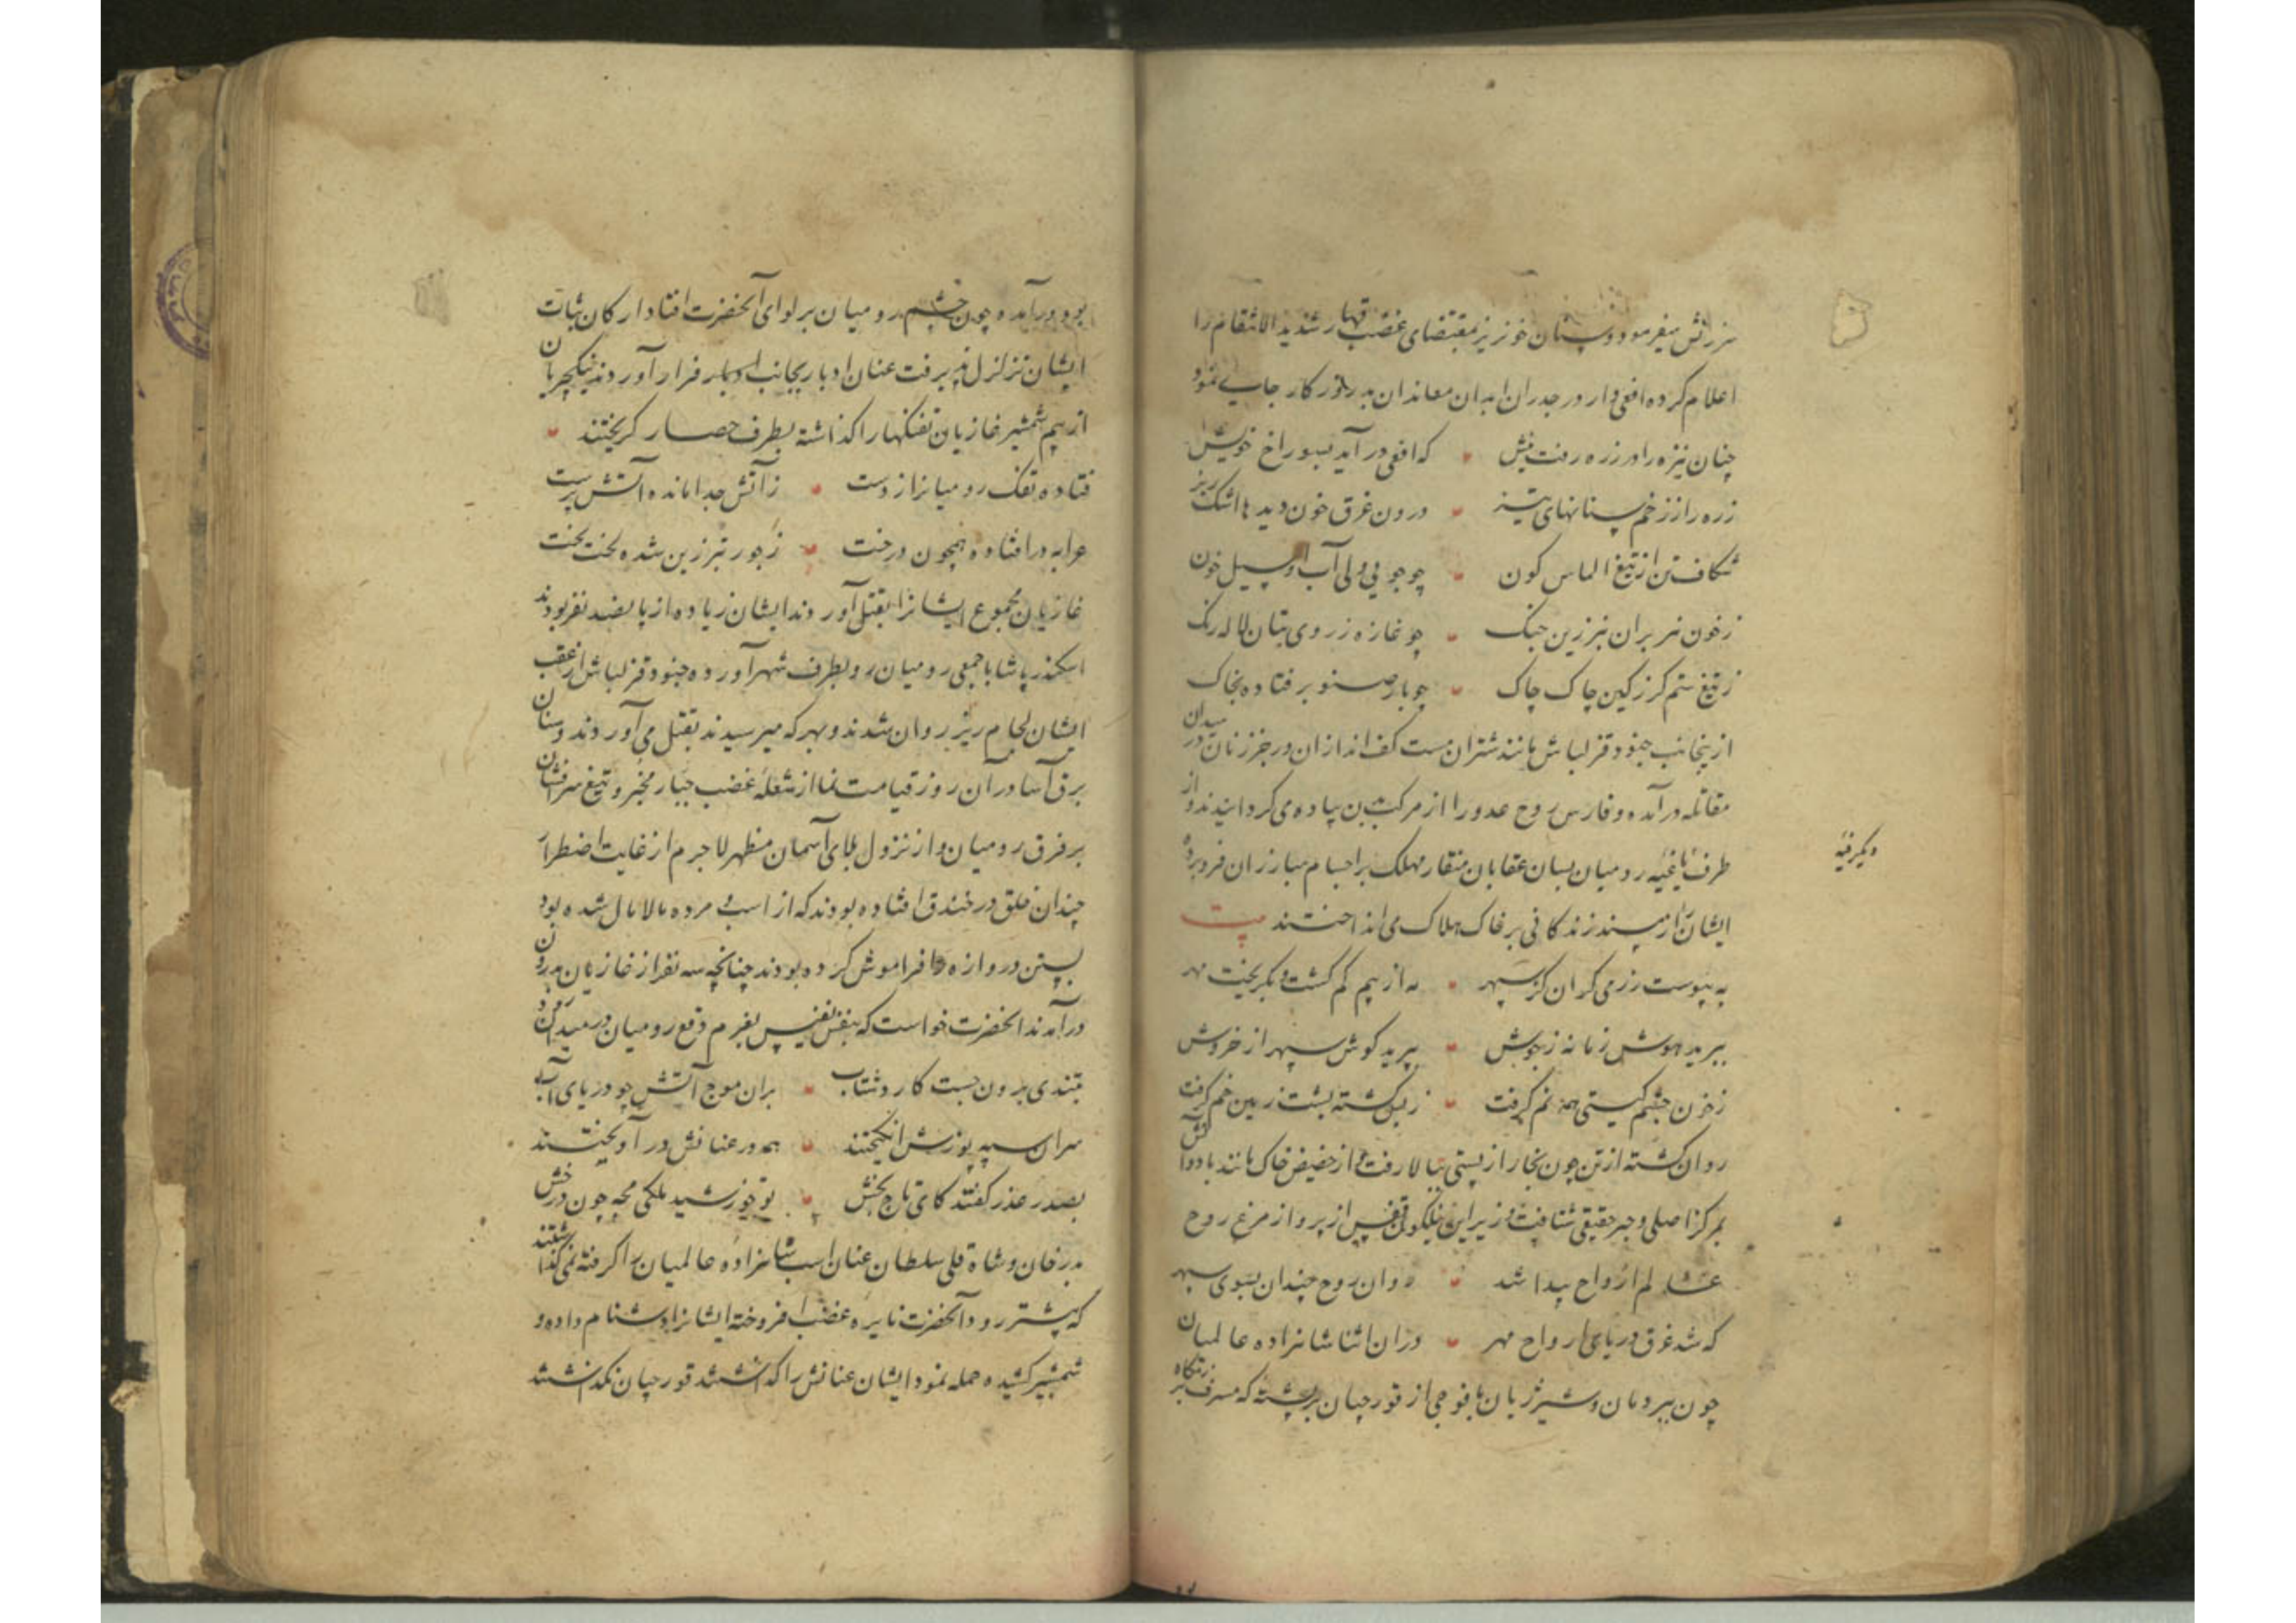 سرزنش میفرمود و سنان خونریز بمقتضای غضب قهار شدید الانتقام را
اعلام کرده افعی وار در جدران ابدان معاندان بد روزکار جای می نمود
چنان نیزه را در زره رفت نیش که افعی در آید بسوراخ خویش
زره را ز زخم سنانهای تیز درون غرق خون دیدها اشک ریز
شکاف تن از تیغ الماس کون چو جویی ولی آب او سیل خون
زخون سر بران تبرزین جنک چو غازه ز روی بتان لاله رنک
ز تیغ ستم کرز کین چاک چاک چو بار صنوبر فتاده بخاک
ازینجانب جنود قزلباش مانند شتران مست کف اندازان و رجز زنان در میدان
مقاتله درآمده و فارس روح عدو را از مرکب بدن پیاده می کردانیدند و از
طرف یاغیه رومیان بسان عقابان منقار مهلک بر اجسام مبارزان فرو برده
دیکر فیه
ایشان را از سمند زندکانی بر خاک هلاک می انداختند بیت
به پیوست رزمی کران کز سپهر مه از بیم کم کشت و بکریخت مهر
ببرید هوش زمانه ز جوش بدرید کوش سپهر از خروش
زخون چشم کیتی همه نم کرفت ز بس کشته پشت زمین خم کرفت
روان کشته از تن چون بخار از پستی ببالا رفت و از حضیض خاک مانند باد و آتش
بمرکز اصلی و حیز حقیقی شتافت و زیر این نیلکون قفس از پرواز مرغ روح
عالم ارواح پیدا شد روان روح چندان بسوی سپهر
که شد غرق دریای ارواح مهر دران اثنا شاهزاده عالمیان
چون ببر دمان و شیر ژیان با فوجی از قورچیان بر پشته که مشرف بر رزمکاه
بود در آمده چون چشم رومیان بر لوای آنحضرت افتاد ارکان ثبات
ایشان تزلزل پذیرفت عنان ادبار بجانب فرار آوردند ینکچریان
از بیم شمشیر غازیان تفنکها را کذاشته بطرف حصار کریختند
فتاده تفک رومیانرا ز دست ز آتش جدا مانده آتش پرست
عرابه در افتاده همچون درخت ز جور تبرزین شده لخت لخت
غازیان مجموع ایشانرا بقتل آوردند ایشان زیاده از پانصد نفر بودند
اسکندر پاشا با جمعی رومیان رو بطرف شهر آورده جنود قزلباش از عقب
ایشان لجام ریز روان شدند و بهر که میرسیدند بقتل می آوردند و سنان
برق آسا در آن روز قیامت نما از شعله غضب جبار مخبر و تیغ سرافشان
بر فرق رومیان و از نزول بلای آسمان مظهر لاجرم از غایت اضطرار
چندان خلق در خندق افتاده بودند که از اسب و مرده مالامال شده بود
بستن دروازه را فراموش کرده بودند چنانچه سه نفر از غازیان بدرون
درآمدند آنحضرت خواست که بنفس نفیس بعزم دفع رومیان در میدان رود
بتندی برون جست کار و شتاب بران موج آتش چو دریای آب
سران سپه پوزش انکیختند همه در عنانش در آویختند
بصد عذر کفتند کای تاج بخش تو خورشید ملکی مجه چون درخش
بدر خان و شاه قلی سلطان عنان اسب شاهزاده عالمیان را کرفته نمی کذاشتند
که پیشتر رود آنحضرت نایره غضب افروخته ایشانرا دشنام داده و
شمشیر کشیده حمله نمود ایشان عنانش را کذاشتند قورچیان نکذاشتند